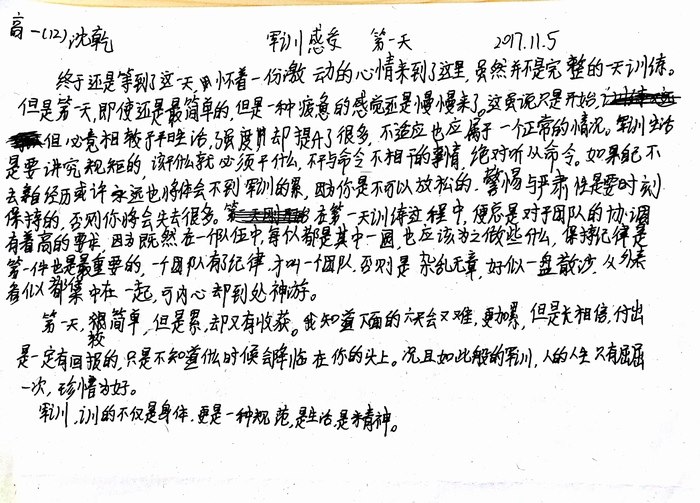 高一(12) 沈乾 军训感受 第一天 2017.11.5
终于还是等到了这一天,怀着一份激动的心情来到了这里,虽然并不是完整的一天训练。
但是第一天,即使还是最简单的,但是一种疲惫的感觉还是慢慢来了。这虽说只是开始,
但必竟相较于平日生活,强度却提升了很多,不适应也应属于一个正常的情况。军训生活
是要讲究规矩的,该干什么就必须干什么,不干与命令不相干的事情,绝对听从命令。如果自己不
去亲自经历或许永远也将体会不到军训的累,因为你是不可以放松的,警惕与严肃性是要时刻
保持的,否则你将会失去很多。在第一天训练过程中,便总是对于团队的协调
有着高的要求,因为既然在一个队伍中,每个似都是其中一圆,也应该为之做些什么,保持纪律是
第一件也是最重要的,一个团队有纪律,才叫一个团队,否则是杂乱无章,好似一盘散沙,从外表
看似都集中在一起,可内心却到处神游。
第一天,较简单,但是累,却又有收获。我知道下面的六天会又难,更加累,但是我相信,付出
是一定有回报的,只是不知道什么时候会降临在你的头上。况且如此般的军训,人的人生只有屈屈
一次,珍惜为好。
军训,训的不仅是身体,更是一种规范,是生活,是精神。